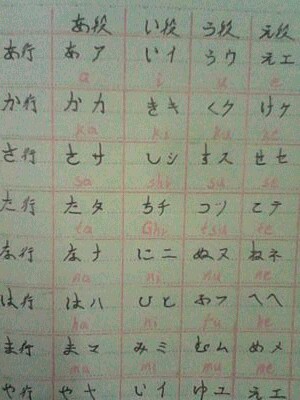 あ段 い段 う段 え段
あ行 あ ア い イ う ウ え エ
a i u e
か行 か カ き キ く ク け ケ
ka ki ku ke
さ行 さ サ し シ す ス せ セ
sa shi su se
た行 た タ ち チ つ ツ て テ
ta chi tsu te
な行 な ナ に ニ ぬ ヌ ね ネ
na ni nu ne
は行 は ハ ひ ヒ ふ フ へ ヘ
ha hi fu he
ま行 ま マ み ミ む ム め メ
ma mi mu me
や行 や ヤ い イ ゆ ユ え エ